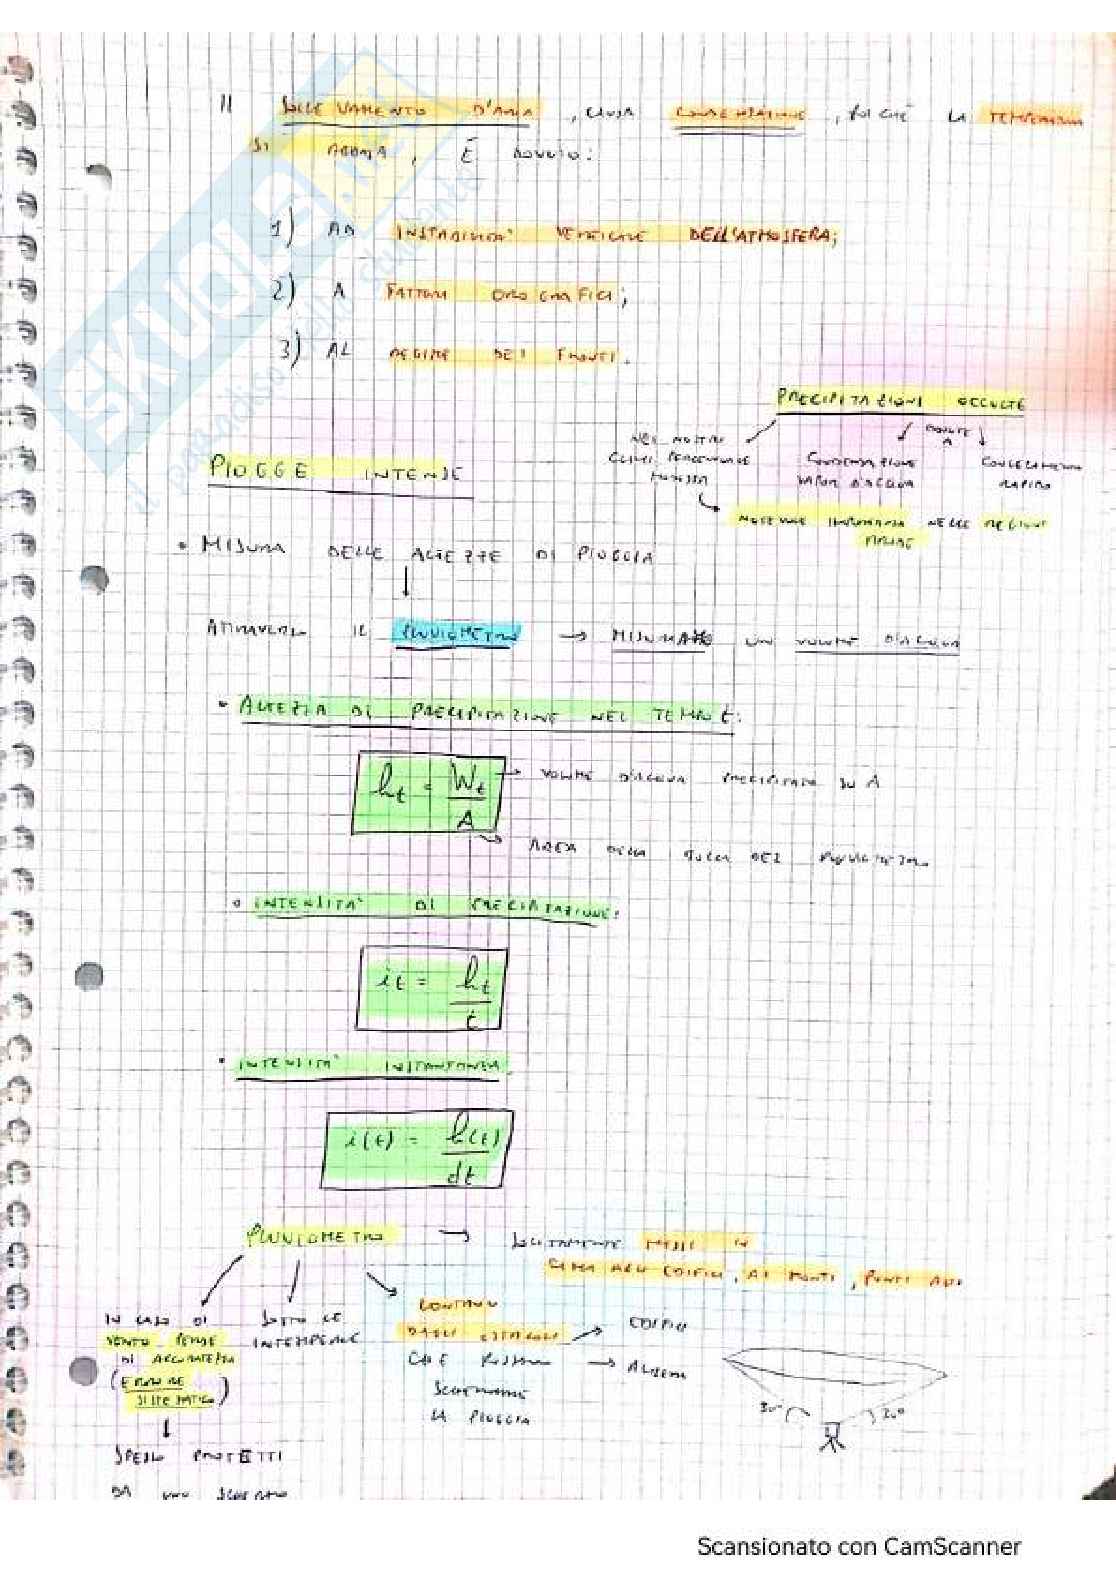 Il SOLLEVAMENTO D'ARIA, CAUSA CONDENSAZIONE, POICHÉ LA TEMPERATURA
SI ABBASSA, È DOVUTO:
1) AD INSTABILITÀ VERTICALE DELL'ATMOSFERA;
2) A FATTORI OROGRAFICI;
3) AL REGIME DEI FRONTI.
PRECIPITAZIONI OCCULTE
DOVUTE
A
NEI NOSTRI
CLIMI PERCENTUALE
CONDENSAZIONE
VAPOR D'ACQUA
CONGELAMENTO
RAPIDO
NOTEVOLE IMPORTANZA NELLE REGIONI
ARIDE
PIOGGE INTENSE
• MISURA DELLE ALTEZZE DI PIOGGIA
ATTRAVERSO IL PLUVIOMETRO → MISURARE UN VOLUME D'ACQUA
• ALTEZZA DI PRECIPITAZIONE NEL TEMPO t:
ht = Wt/A
→ VOLUME D'ACQUA PRECIPITATO SU A
→ AREA DELLA BOCCA DEL PLUVIOMETRO
• INTENSITÀ DI PRECIPITAZIONE:
it = ht/t
• INTENSITÀ INSTANTANEA
i(t) = h(t)/dt
PLUVIOMETRO → SOLITAMENTE MESSI IN
CIMA AGLI EDIFICI, AI PONTI, PUNTI ALTI
IN CASO DI
VENTO PERDE
DI ACCURATEZZA
(ERRORE
SISTEMATICO)
SPESSO PROTETTI
DA UNO SCHERMO
SOTTO LE
INTEMPERIE
LONTANO
DAGLI OSTACOLI
CHE POSSONO
SCHERMARE
LA PIOGGIA
→ EDIFICI
→ ALBERI
30°
20°
SKUOLA.net
il paradiso dello studente
Scansionato con CamScanner